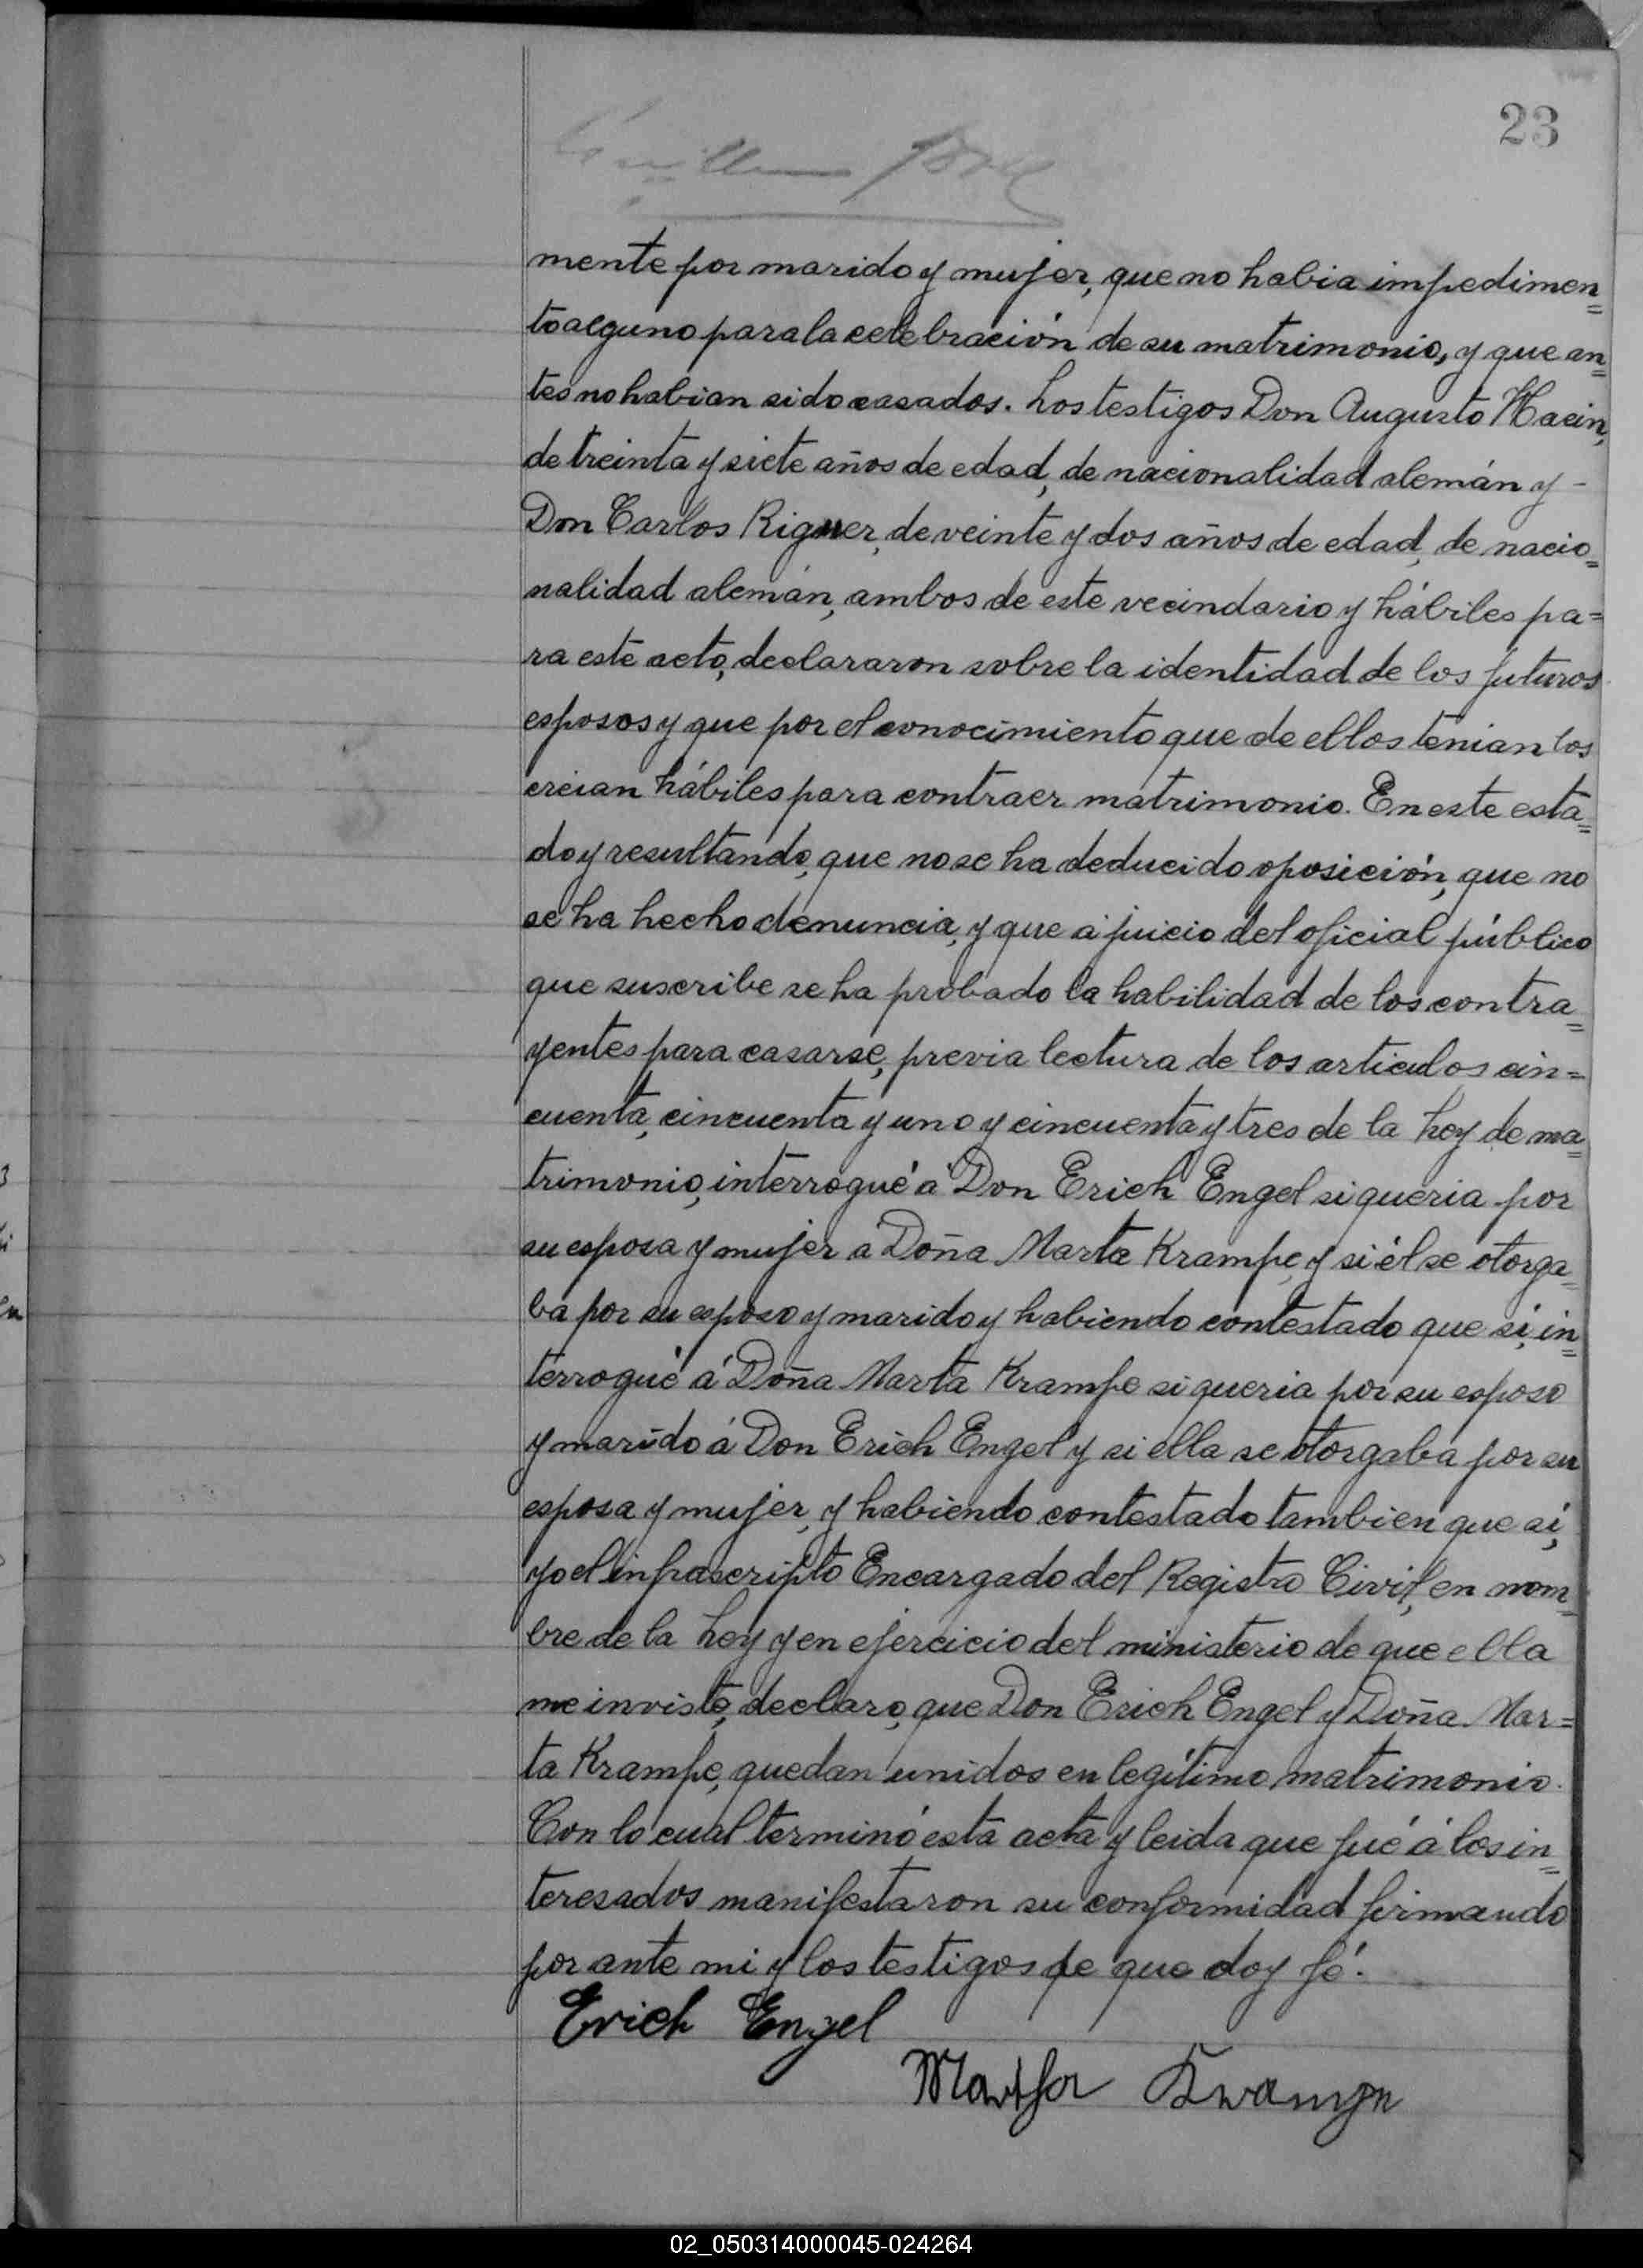 23
mente por marido y mujer, que no habia impedimen=
to alguno para la celebración de su matrimonio, y que an=
tes no habian sido casados. Los testigos Don Augusto
de treinta y siete años de edad, de nacionalidad alemán y -
Don Carlos Rigner, de veinte y dos años de edad, de nacio=
nalidad alemán, ambos de este vecindario y hábiles pa=
ra este acto, declararon sobre la identidad de los futuros
esposos y que por el conocimiento que de ellos tenian los
creian hábiles para contraer matrimonio. En este esta=
do y resultando, que no se ha deducido oposición, que no
se ha hecho denuncia, y que á juicio del oficial público
que suscribe se ha probado la habilidad de los contra=
yentes para casarse, previa lectura de los articulos cin=
cuenta, cincuenta y uno y cincuenta y tres de la Ley de ma=
trimonio, interrogué á Don Erich Engel si queria por
su esposa y mujer á Doña Marta Krampe, y si él se otorga=
ba por su esposo y marido y habiendo contestado que sí, in=
terrogué á Doña Marta Krampe si queria por su esposo
y marido á Don Erich Engel y si ella se otorgaba por su
esposa y mujer, y habiendo contestado también que sí,
yo el infrascripto Encargado del Registro Civil, en nom=
bre de la Ley y en ejercicio del ministerio de que ella
me inviste, declaro, que Don Erich Engel y Doña Mar=
ta Krampe, quedan unidos en legítimo matrimonio.
Con lo cual terminó esta acta y leida que fué á los in=
teresados manifestaron su conformidad firmando
por ante mi y los testigos de que doy fé.
Erich Engel
Martha Krampe
02_050314000045-024264